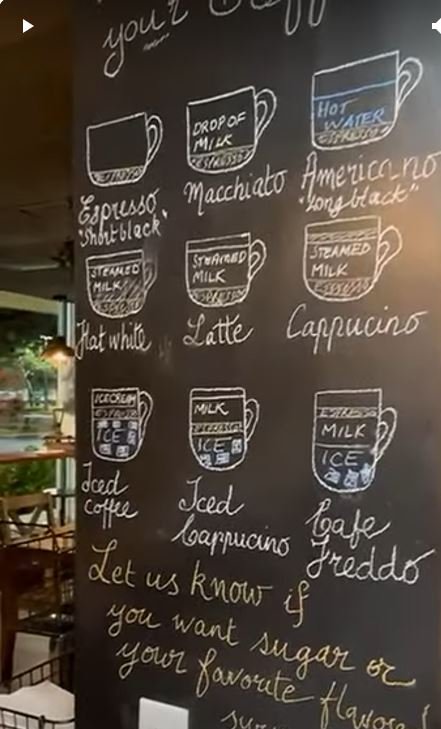 your
ESPRESSO
Espresso
"Short black"
DROP OF
MILK
ESPRESSO
Macchiato
HOT
WATER
ESPRESSO
Americano
"Long black"
STEAMED
MILK
Flat white
STEAMED
MILK
ESPRESSO
Latte
STEAMED
MILK
ESPRESSO
Cappucino
ICECREAM
ESPRESSO
ICE
Iced
Coffee
MILK
ESPRESSO
ICE
Iced
Cappucino
ESPRESSO
MILK
ICE
Cafe
Freddo
Let us know if
you want sugar or
your favorite